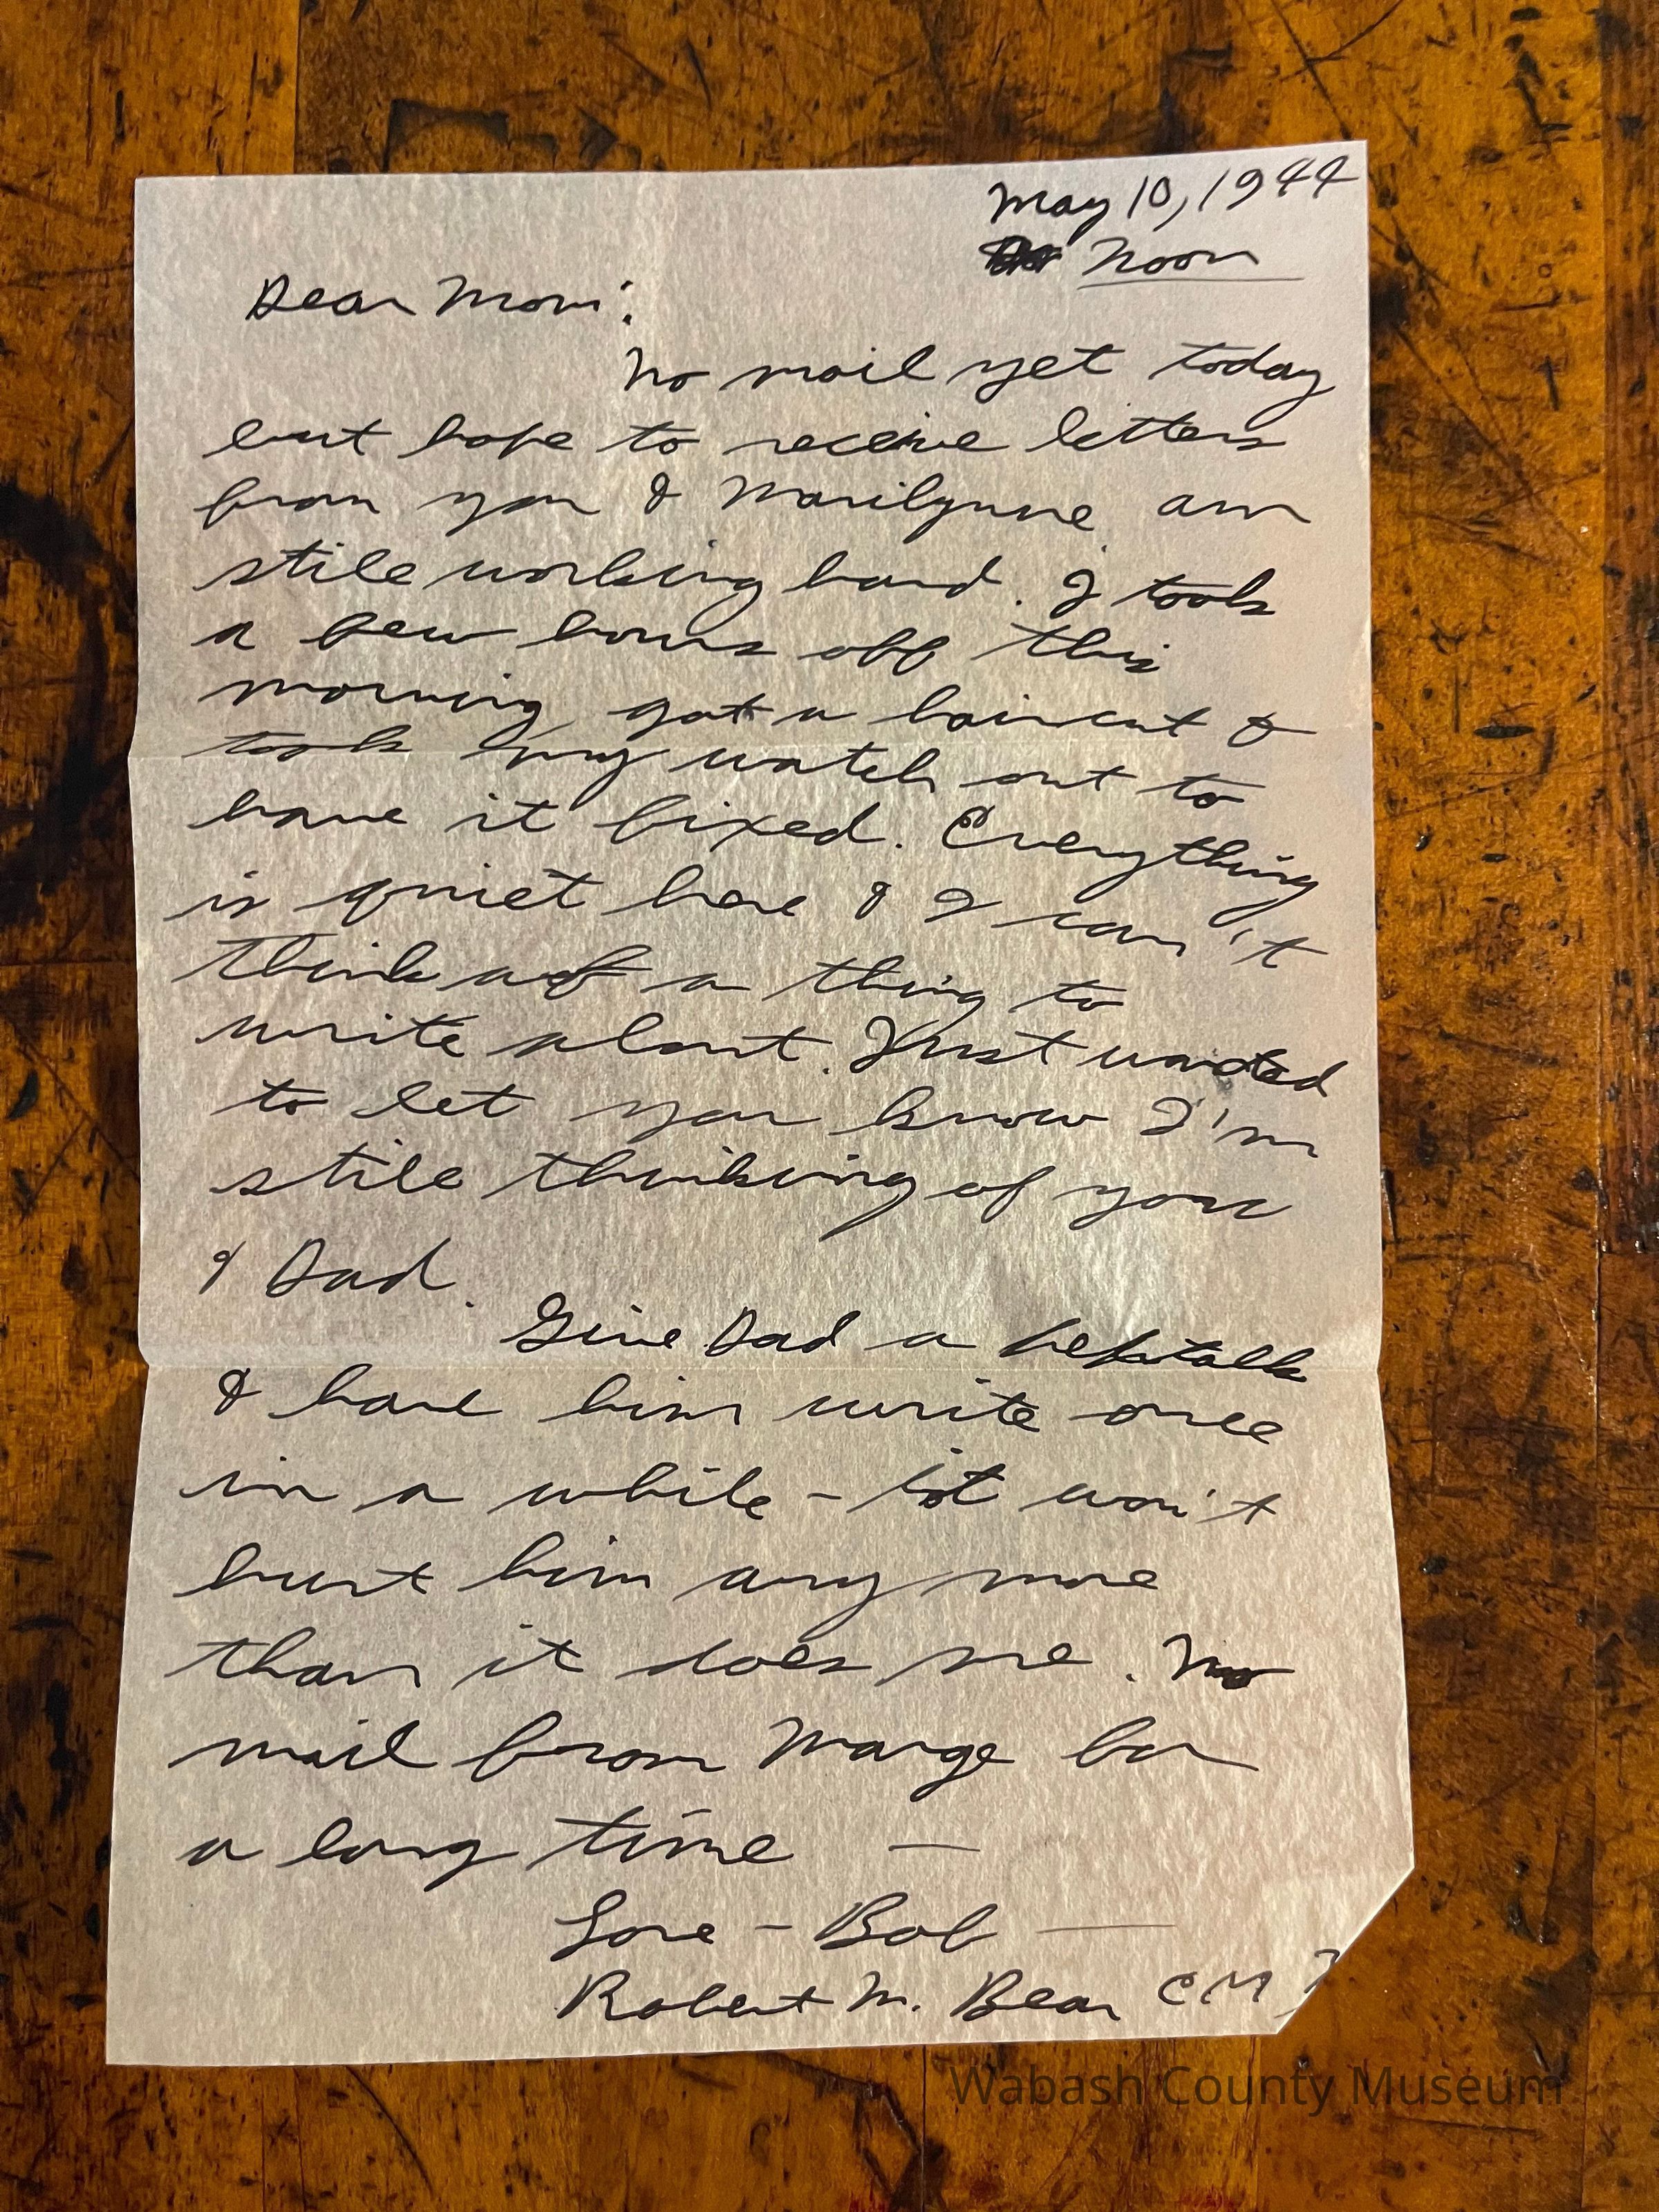 May 10, 1944
Noon
Dear Mom:
No mail yet today
but hope to receive letters
from you & Marilynne am
still working hard. I took
a few hours off this
morning, got a haircut &
took my watch out to
have it fixed. Everything
is quiet here & I can't
think of a thing to
write about. Just wanted
to let you know I'm
still thinking of you
& Dad.
Give Dad a peptalk
& have him write once
in a while - it won't
hurt him any more
than it does me. No
mail from Marge for
a long time —
Love - Bob —
Robert M. Bear CM
Wabash County Museum